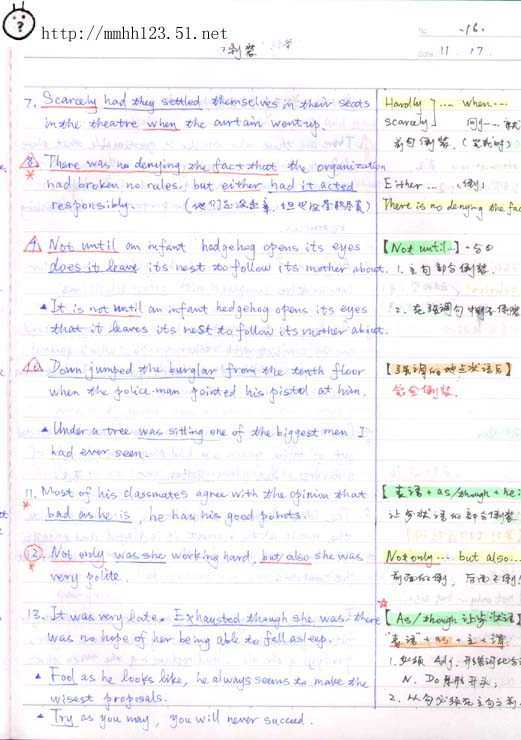 http://mmhh123.51.net
No. 16.
倒装
Date 11 . 17.
7. Scarcely had they settled themselves in their seats
in the theatre when the curtain went up.
Hardly ]... when...
Scarcely
8. There was no denying the fact that the organization
had broken no rules, but either had it acted
responsibly.
Either ... (倒)
There is no denying the fac
9. Not until an infant hedgehog opens its eyes
does it leave its nest to follow its mother about.
【Not until...】
1. 主句部分倒装.
▲ It is not until an infant hedgehog opens its eyes
that it leaves its nest to follow its mother about.
2. 在强调句中则不倒装
10. Down jumped the burglar from the tenth floor
when the police-man pointed his pistol at him.
【强调的地点状语后】
完全倒装.
▲ Under a tree was sitting one of the biggest men I
had ever seen.
11. Most of his classmates agree with the opinion that
bad as he is, he has his good points.
【表语 + as /though + he:
让步状语的部分倒装
12. Not only was she working hard, but also she was
very polite.
Not only... but also...
前面的倒, 后面不倒
13. It was very late. Exhausted though she was, there
was no hope of her being able to fall asleep.
【As/though 让步状语】
"表语" + as + 主 + 谓.
▲ Fool as he looks like, he always seems to make the
wisest proposals.
1. 必须 Adj.
N. Do 原形开头.
▲ Try as you may, you will never succeed.
2. 从句必须在主句之前